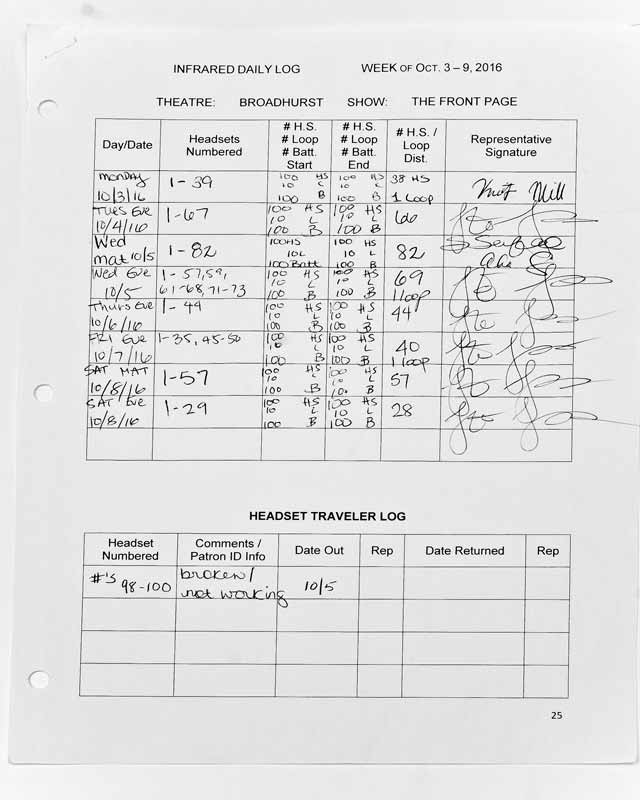 INFRARED DAILY LOG WEEK OF OCT. 3 – 9, 2016
THEATRE: BROADHURST SHOW: THE FRONT PAGE
Day/Date Headsets Numbered # H.S. # Loop # Batt. Start # H.S. # Loop # Batt. End # H.S. / Loop Dist. Representative Signature
Monday 10/3/16 1-39 100 HS 10 L 100 B 100 HS 10 L 100 B 38 HS 1 Loop
Tues Eve 10/4/16 1-67 100 HS 10 L 100 B 100 HS 10 L 100 B 66
Wed mat 10/5 1-82 100HS 10L 100 Batt 100 HS 10 L 100 B 82
Wed Eve 10/5 1-57,59, 61-68,71-73 100 HS 10 L 100 B 100 HS 10 L 100 B 69 1 loop
Thurs Eve 10/6/16 1-44 100 HS 10 L 100 B 100 HS 10 L 100 B 44
FRI Eve 10/7/16 1-35, 45-50 100 HS 10 L 100 B 100 HS 10 L 100 B 40 1 loop
SAT MAT 10/8/16 1-57 100 HS 10 L 100 B 100 HS 10 L 100 B 57
SAT Eve 10/8/16 1-29 100 HS 10 L 100 B 100 HS 10 L 100 B 28
HEADSET TRAVELER LOG
Headset Numbered Comments / Patron ID Info Date Out Rep Date Returned Rep
#'s 98-100 broken/ not working 10/5
25